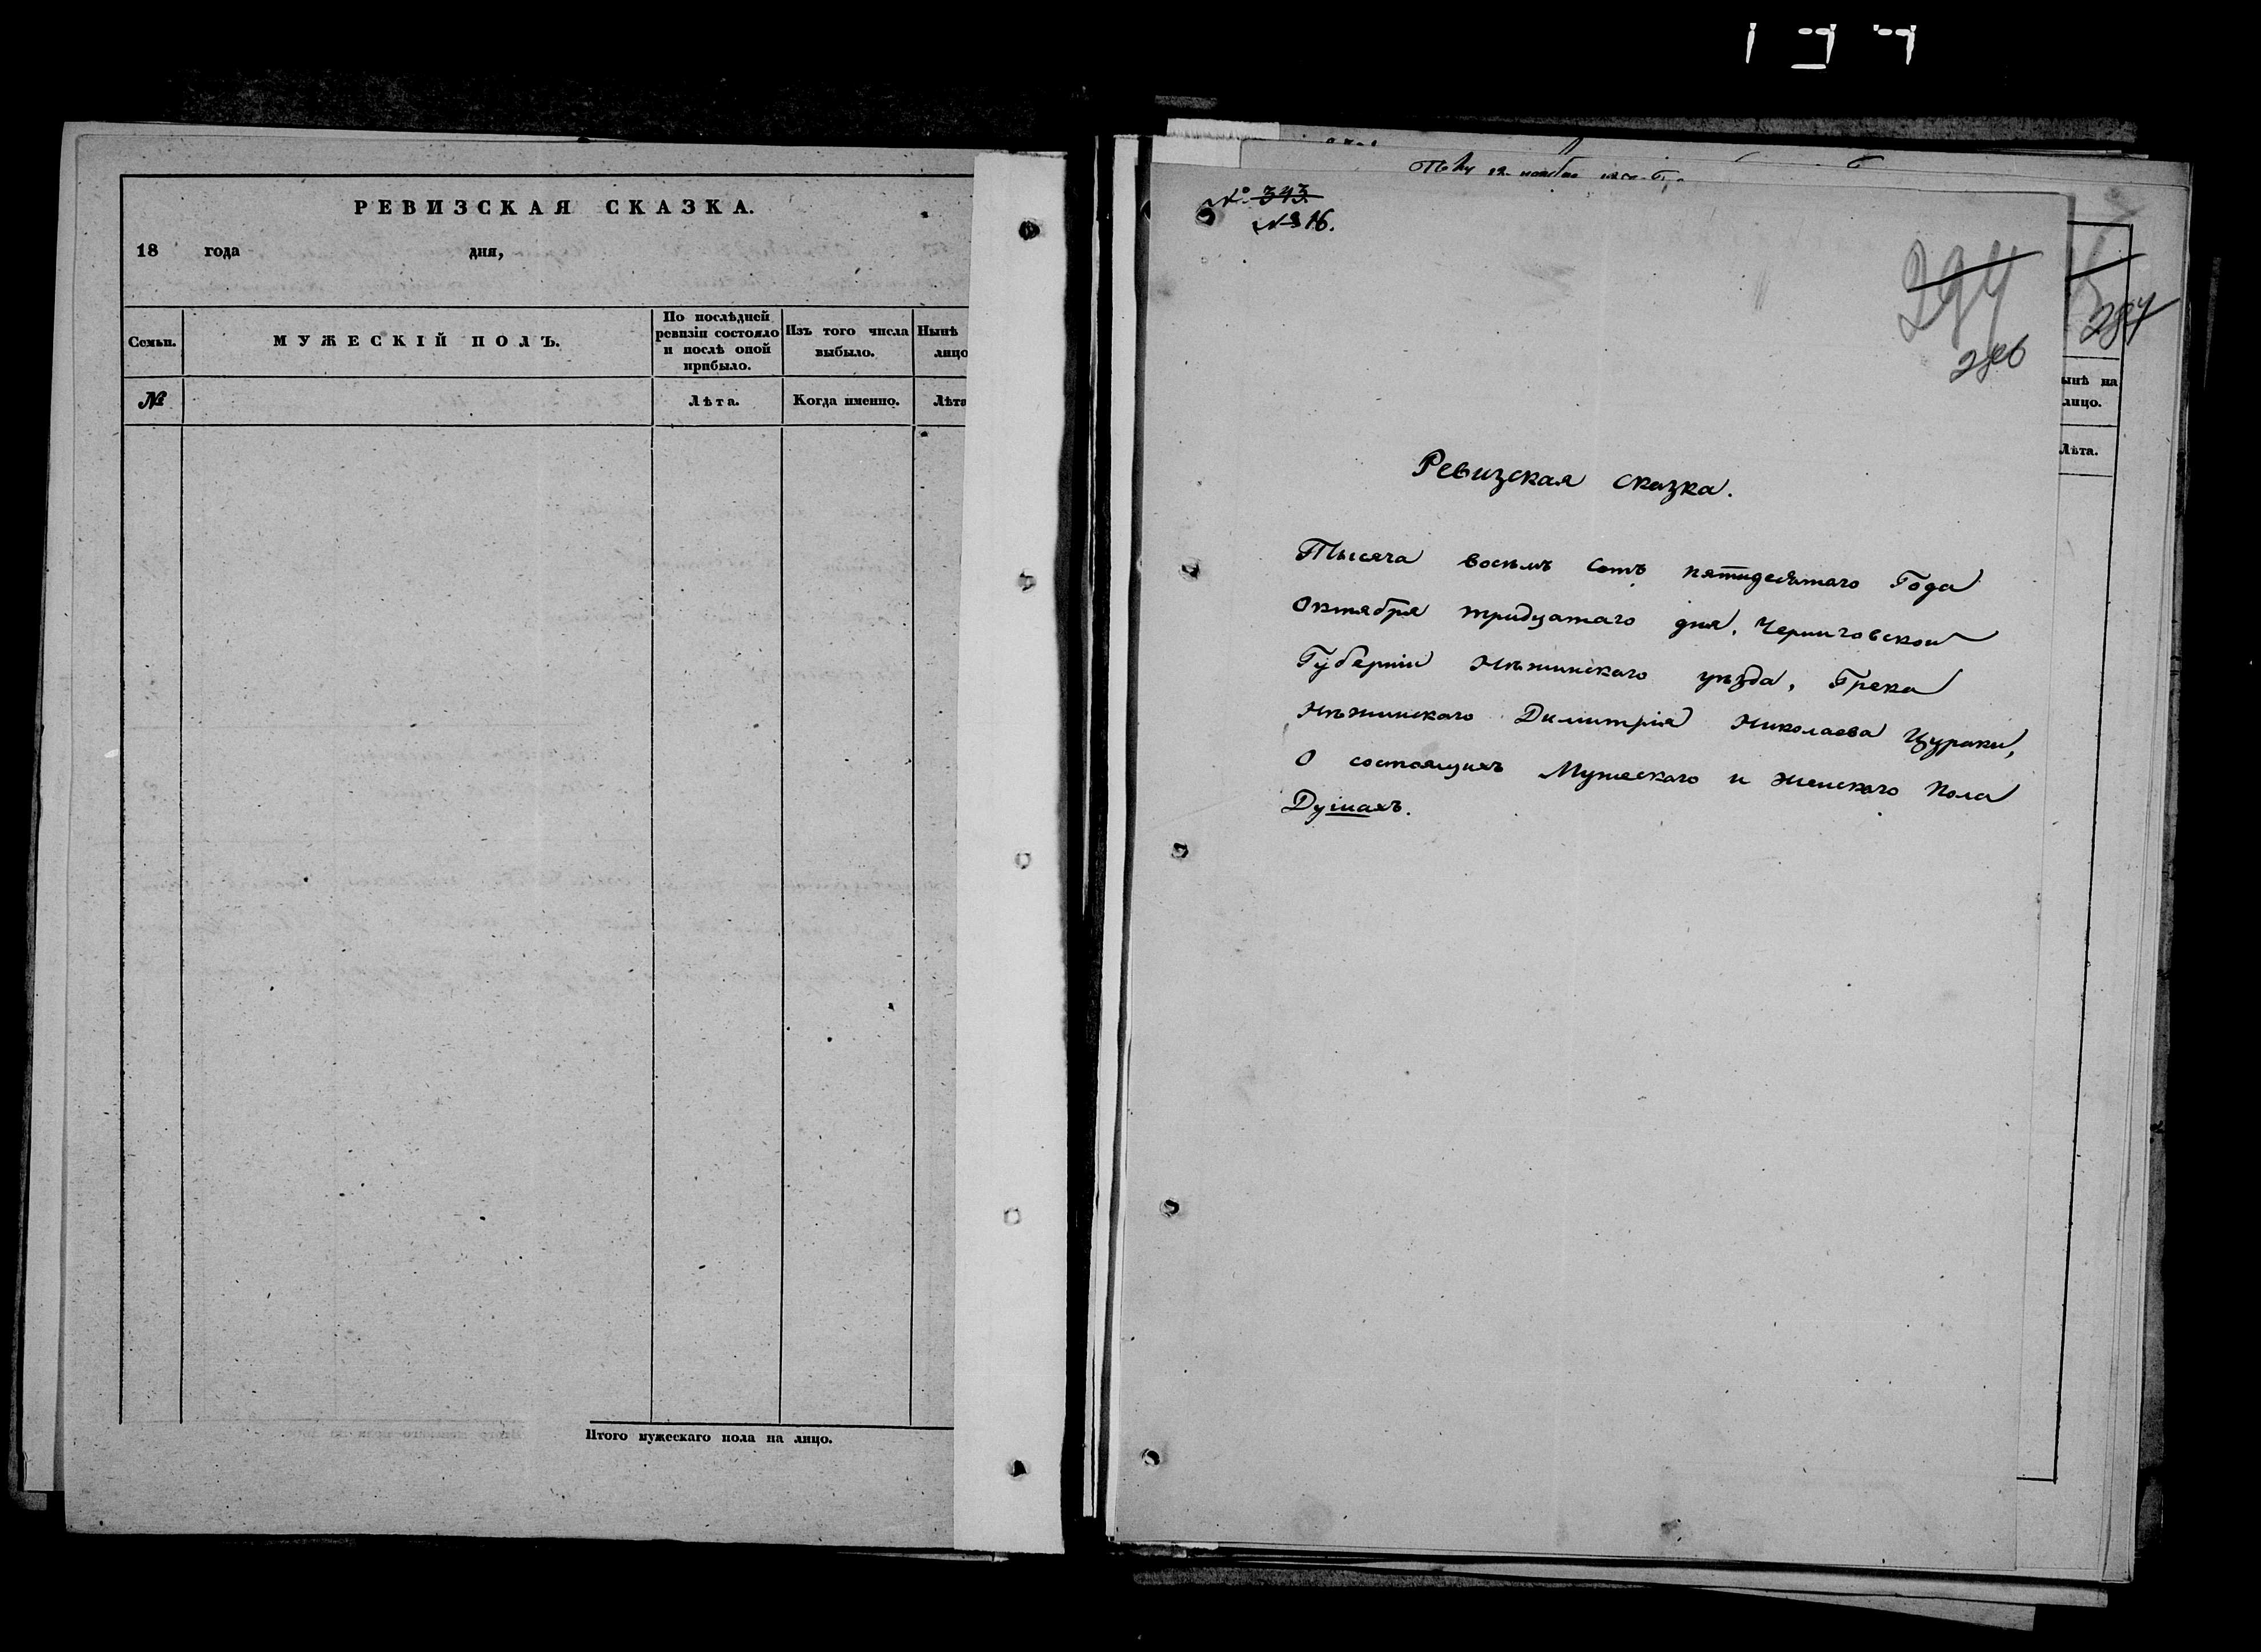 РЕВИЗСКАЯ СКАЗКА.
18 года дня,
Семьи.
МУЖЕСКІЙ ПОЛЪ.
По послѣдней
ревизіи состояло
и послѣ оной
прибыло.
Изъ того числа
выбыло.
Нынѣ
лицо
№
Лѣта.
Когда именно.
Лѣта
Итого мужескаго пола на лицо.
№ 343.
№ 316.
294
286
Ревизская сказка.
Тысяча восемь сотъ пятидесятаго Года
Октября тридцатаго дня, Черниговской
Губерніи Нѣжинскаго уѣзда, Грека
Нѣжинскаго Димитрія Николаева Цураки,
О состоящихъ Мужескаго и женскаго Пола
Душахъ.
287
ынѣ на
лицо.
Лѣта.